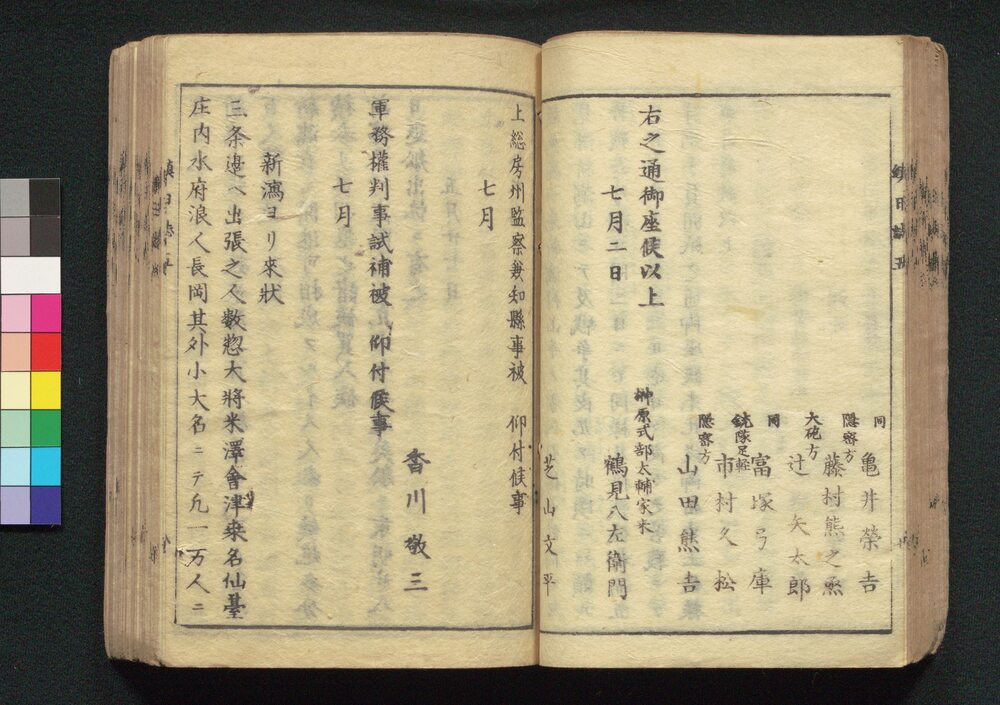 同
亀井榮吉
隠密方
藤村熊之烝
大砲方
辻矢太郎
同
富塚弓庫
銃隊足軽
市村久松
隠密方
山田熊吉
右之通御座候以上
七月二日
榊原式部太輔家来
鶴見八左衛門
芝山文平
上総房州監察兼知縣事被 仰付候事
七月
香川敬三
軍務權判事試補被 仰付候事
七月
新潟ヨリ來状
三条邉ヘ出張之人数惣大將米澤會津桒名仙臺
庄内水府浪人長岡其外小大名ニテ凡一万人ニ